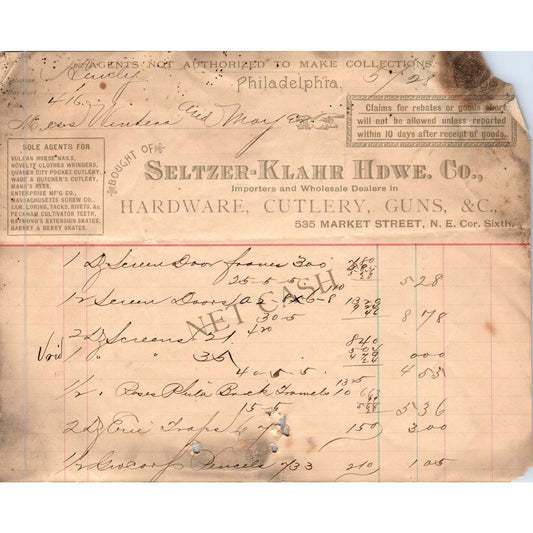 AGENTS NOT AUTHORIZED TO MAKE COLLECTIONS.
Philadelphia, 5/28
Claims for rebates or goods short
will not be allowed unless reported
within 10 days after receipt of goods.
SOLE AGENTS FOR
VULCAN HORSE NAILS,
NOVELTY CLOTHES WRINGERS,
QUAKER CITY POCKET CUTLERY,
WADE & BUTCHER'S CUTLERY,
MANN'S AXES,
ENTERPRISE MF'G CO.,
MASSACHUSETTS SCREW CO.,
SAM. LORING, TACKS, RIVETS, &c.
PECKHAM CULTIVATOR TEETH,
RAYMOND'S EXTENSION SKATES,
BARNEY & BERRY SKATES.
BOUGHT OF
SELTZER-KLAHR HDWE. CO.,
Importers and Wholesale Dealers in
HARDWARE, CUTLERY, GUNS, &C.,
535 MARKET STREET, N. E. Cor. Sixth.
1 Dz Screen Door frames 300
25-5-5 5 28
1/2 Screen Doors 6-8
NET CASH
30-5 8 78
2 Dz Screens 21 840
1 " " 35
40-5-5 4 55
1/2 " Roses Phila Back Trowels 10
15-5 5 36
2 Dz Erie Traps 150 3 00
1/2 Pencils 210 1 05